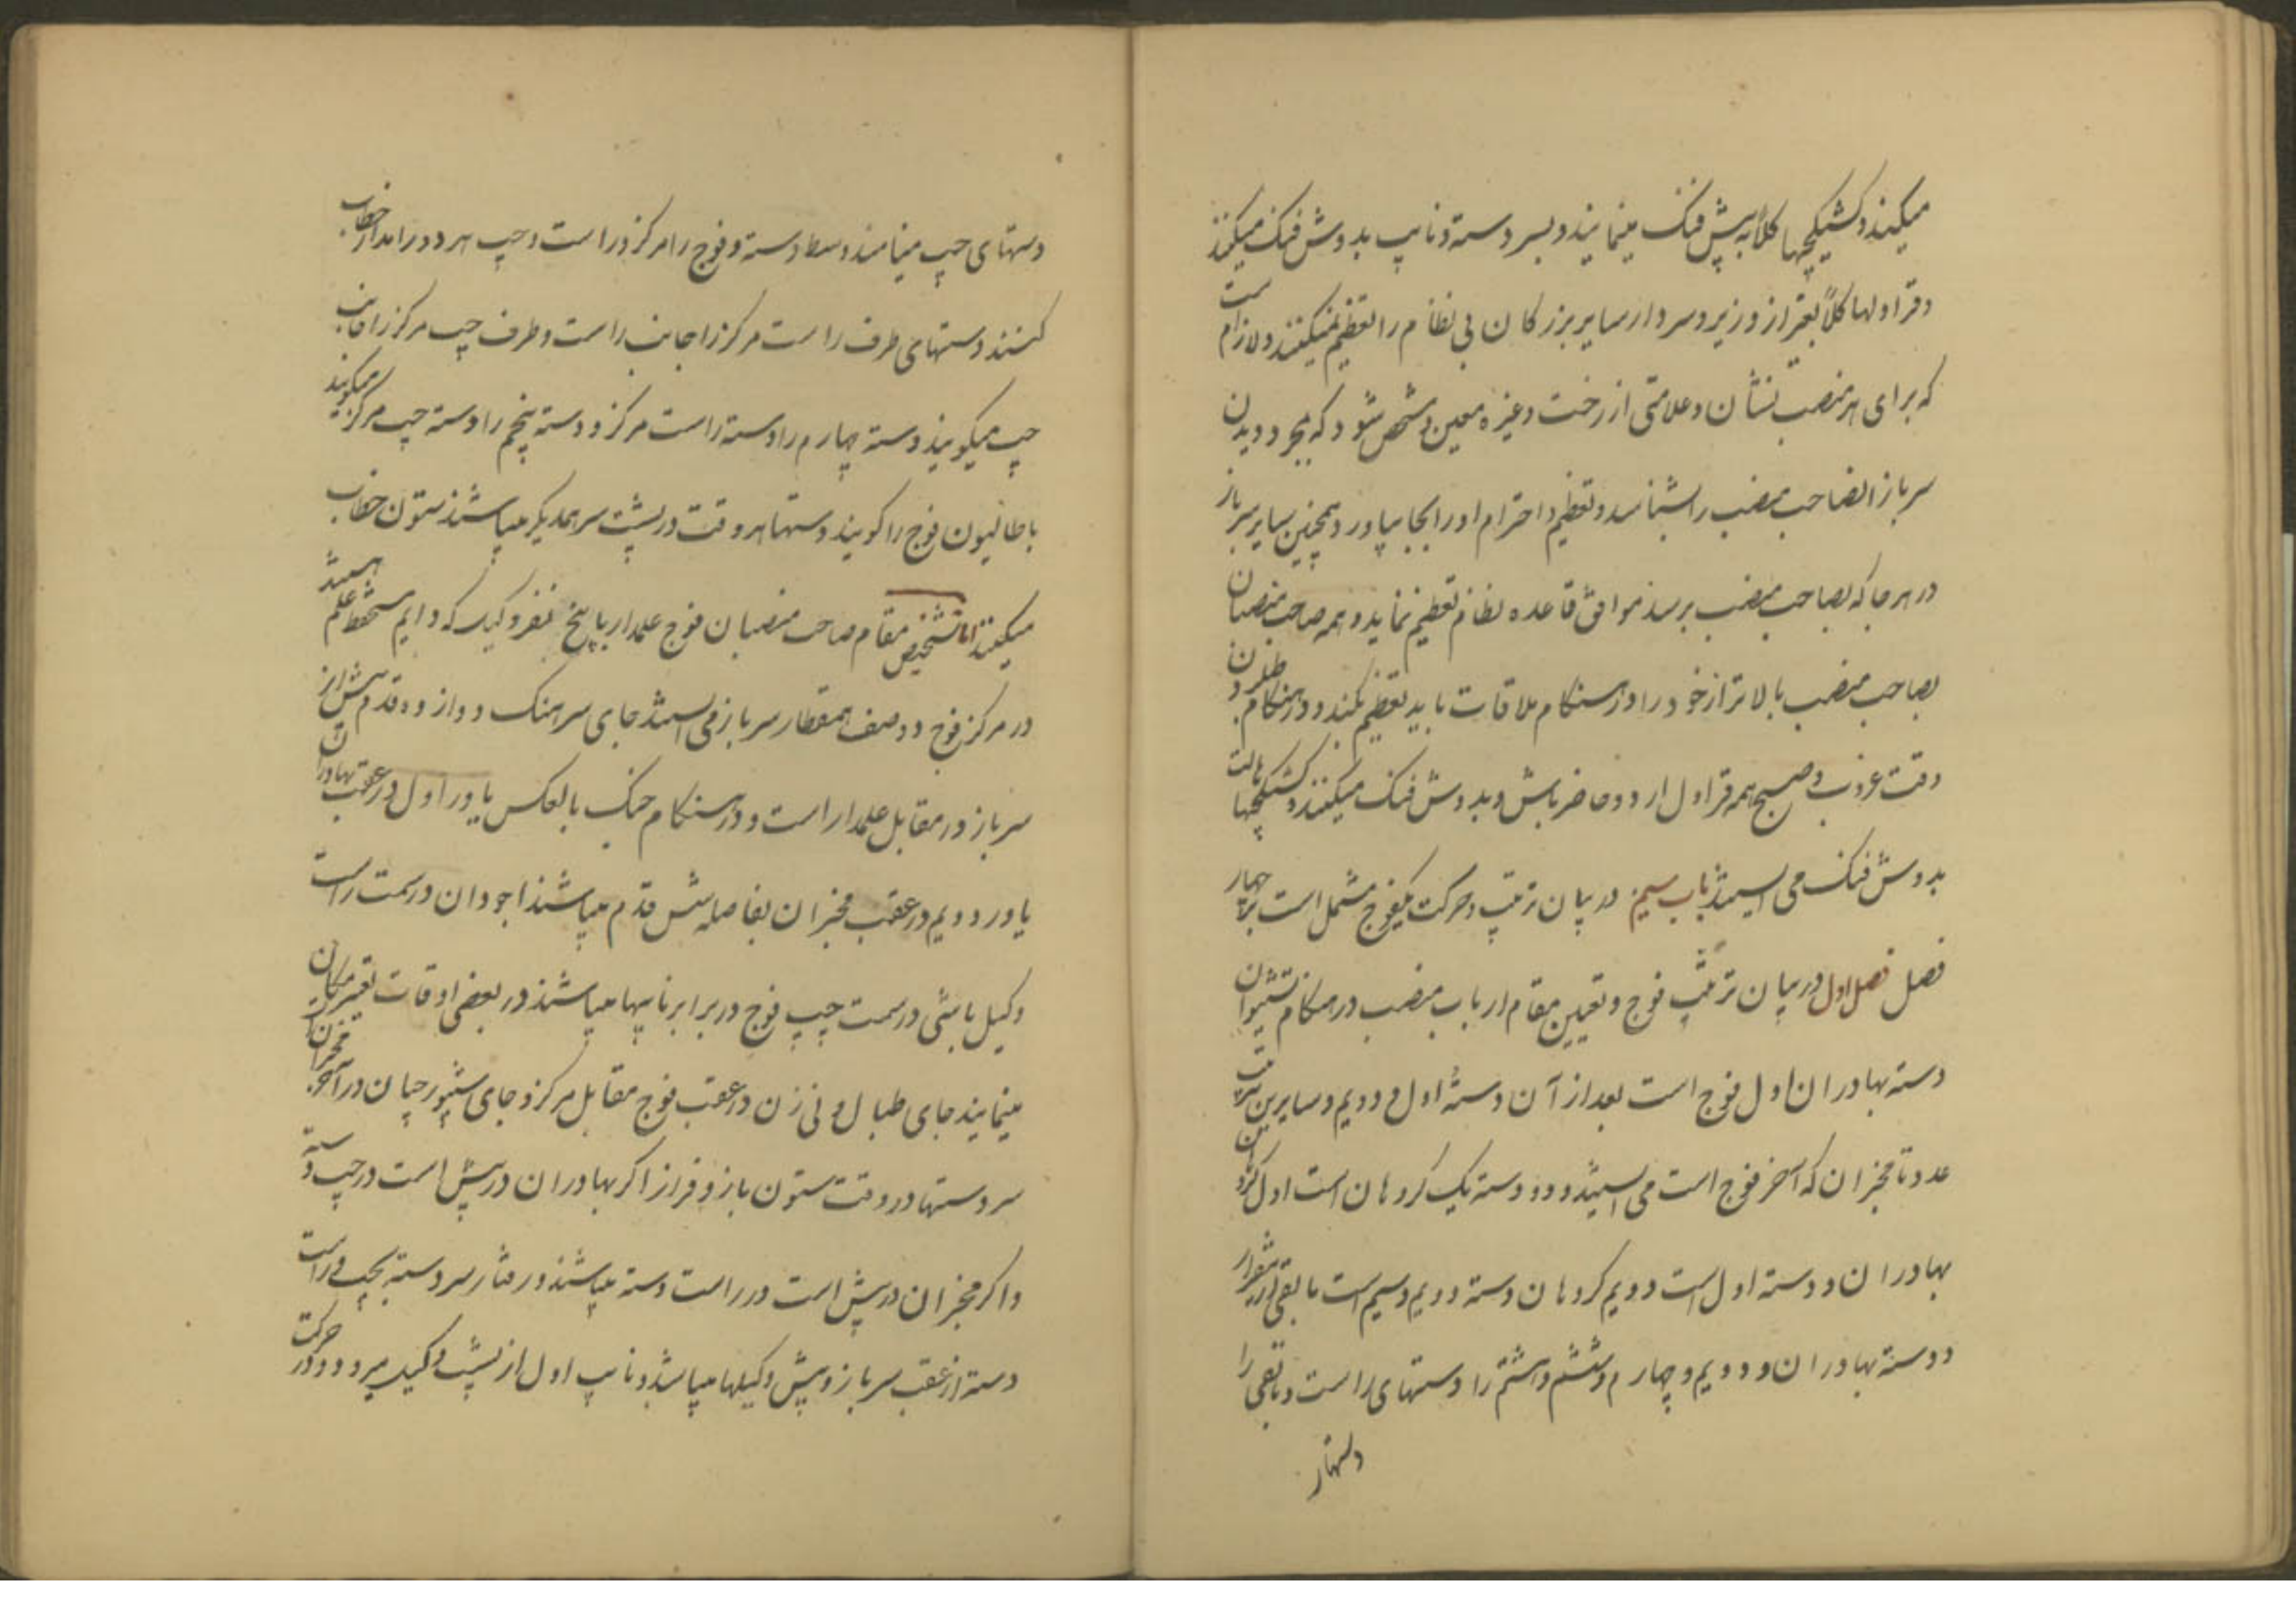 میکنند و کشیکچیها کلاً به پیش فنک مینمایند و بسر دسته و نایب بدوش فنک میکنند
و قراولها کلاً بغیر از وزیر و سردار سایر بزرکان بی نظام را تعظیم نمیکنند و لازم است
که برای هر منصب نشان و علامتی از رخت و غیره معین و مشخص شود که بمجرد دیدن
سرباز انصاحب منصب را بشناسد و تعظیم و احترام او را بجا بیاورد و همچنین سایر سرباز
در هر جا که بصاحب منصب برسد موافق قاعده نظام تعظیم نماید و همه صاحب منصبان
بصاحب منصب بالاتر از خود را در هنکام ملاقات باید تعظیم بکند و در هنکام
وقت غروب و صبح همه قراول اردو حاضر باش و بدوش فنک میکنند و کشیکچیها
بدوش فنک می ایستند باب سیم در بیان ترتیب و حرکت یکفوج مشتمل است بر چهار
فصل فصل اول در بیان ترتیب فوج و تعیین مقام ارباب منصب در هنکام
دسته بهادران اول فوج است بعد از آن دسته اول و دویم و سایرین بترتیب
عدد تا مخبران که آخر فوج است می ایستند و دو دسته یک کروهان است اول کروهان
بهادران و دسته اول است دویم کروهان دسته دویم و سیم است مابقی ازینقرار
دسته بهادران و دویم و چهارم و ششم و هشتم را دستهای راست و باقی را
دستهای چپ مینامند وسط دسته و فوج را مرکز و راست و چپ هر دو را مدار خطاب
کنند دستهای طرف راست مرکز را جانب راست و طرف چپ مرکز را جانب
چپ میکویند دسته چهارم را دسته راست مرکز و دسته پنجم را دسته چپ مرکز میکویند
باطالیون فوج را کویند دستها هر وقت در پشت سر همدیکر میباشند ستون خطاب
میکنند اما تشخیص مقام صاحب منصبان فوج علمدار با پنج نفر وکیل که دایم مستحفظ علم هستند
در مرکز فوج دو صف همقطار سرباز می ایستند جای سرهنک دوازده قدم پیش از
سرباز در مقابل علمدار است و در هنکام جنک بالعکس یاور اول در عقب بهادران
یاور دویم در عقب مخبران بفاصله شش قدم میباشند اجودان در سمت راست
وکیل باشی در سمت چپ فوج در برابر نایبها میباشند در بعضی اوقات تغییر مکان
مینمایند جای طبال و نی زن در عقب فوج مقابل مرکز و جای شیپورچیان در آخر مخبران
سر دستها در وقت ستون باز و فراز اکر بهادران در پیش است در چپ دسته
و اکر مخبران در پیش است در راست دسته میباشند در رفتار سر دسته بچپ و راست
دسته از عقب سرباز و پیش وکیلها میباشد و نایب اول از پشت وکیل میرود و در حرکت